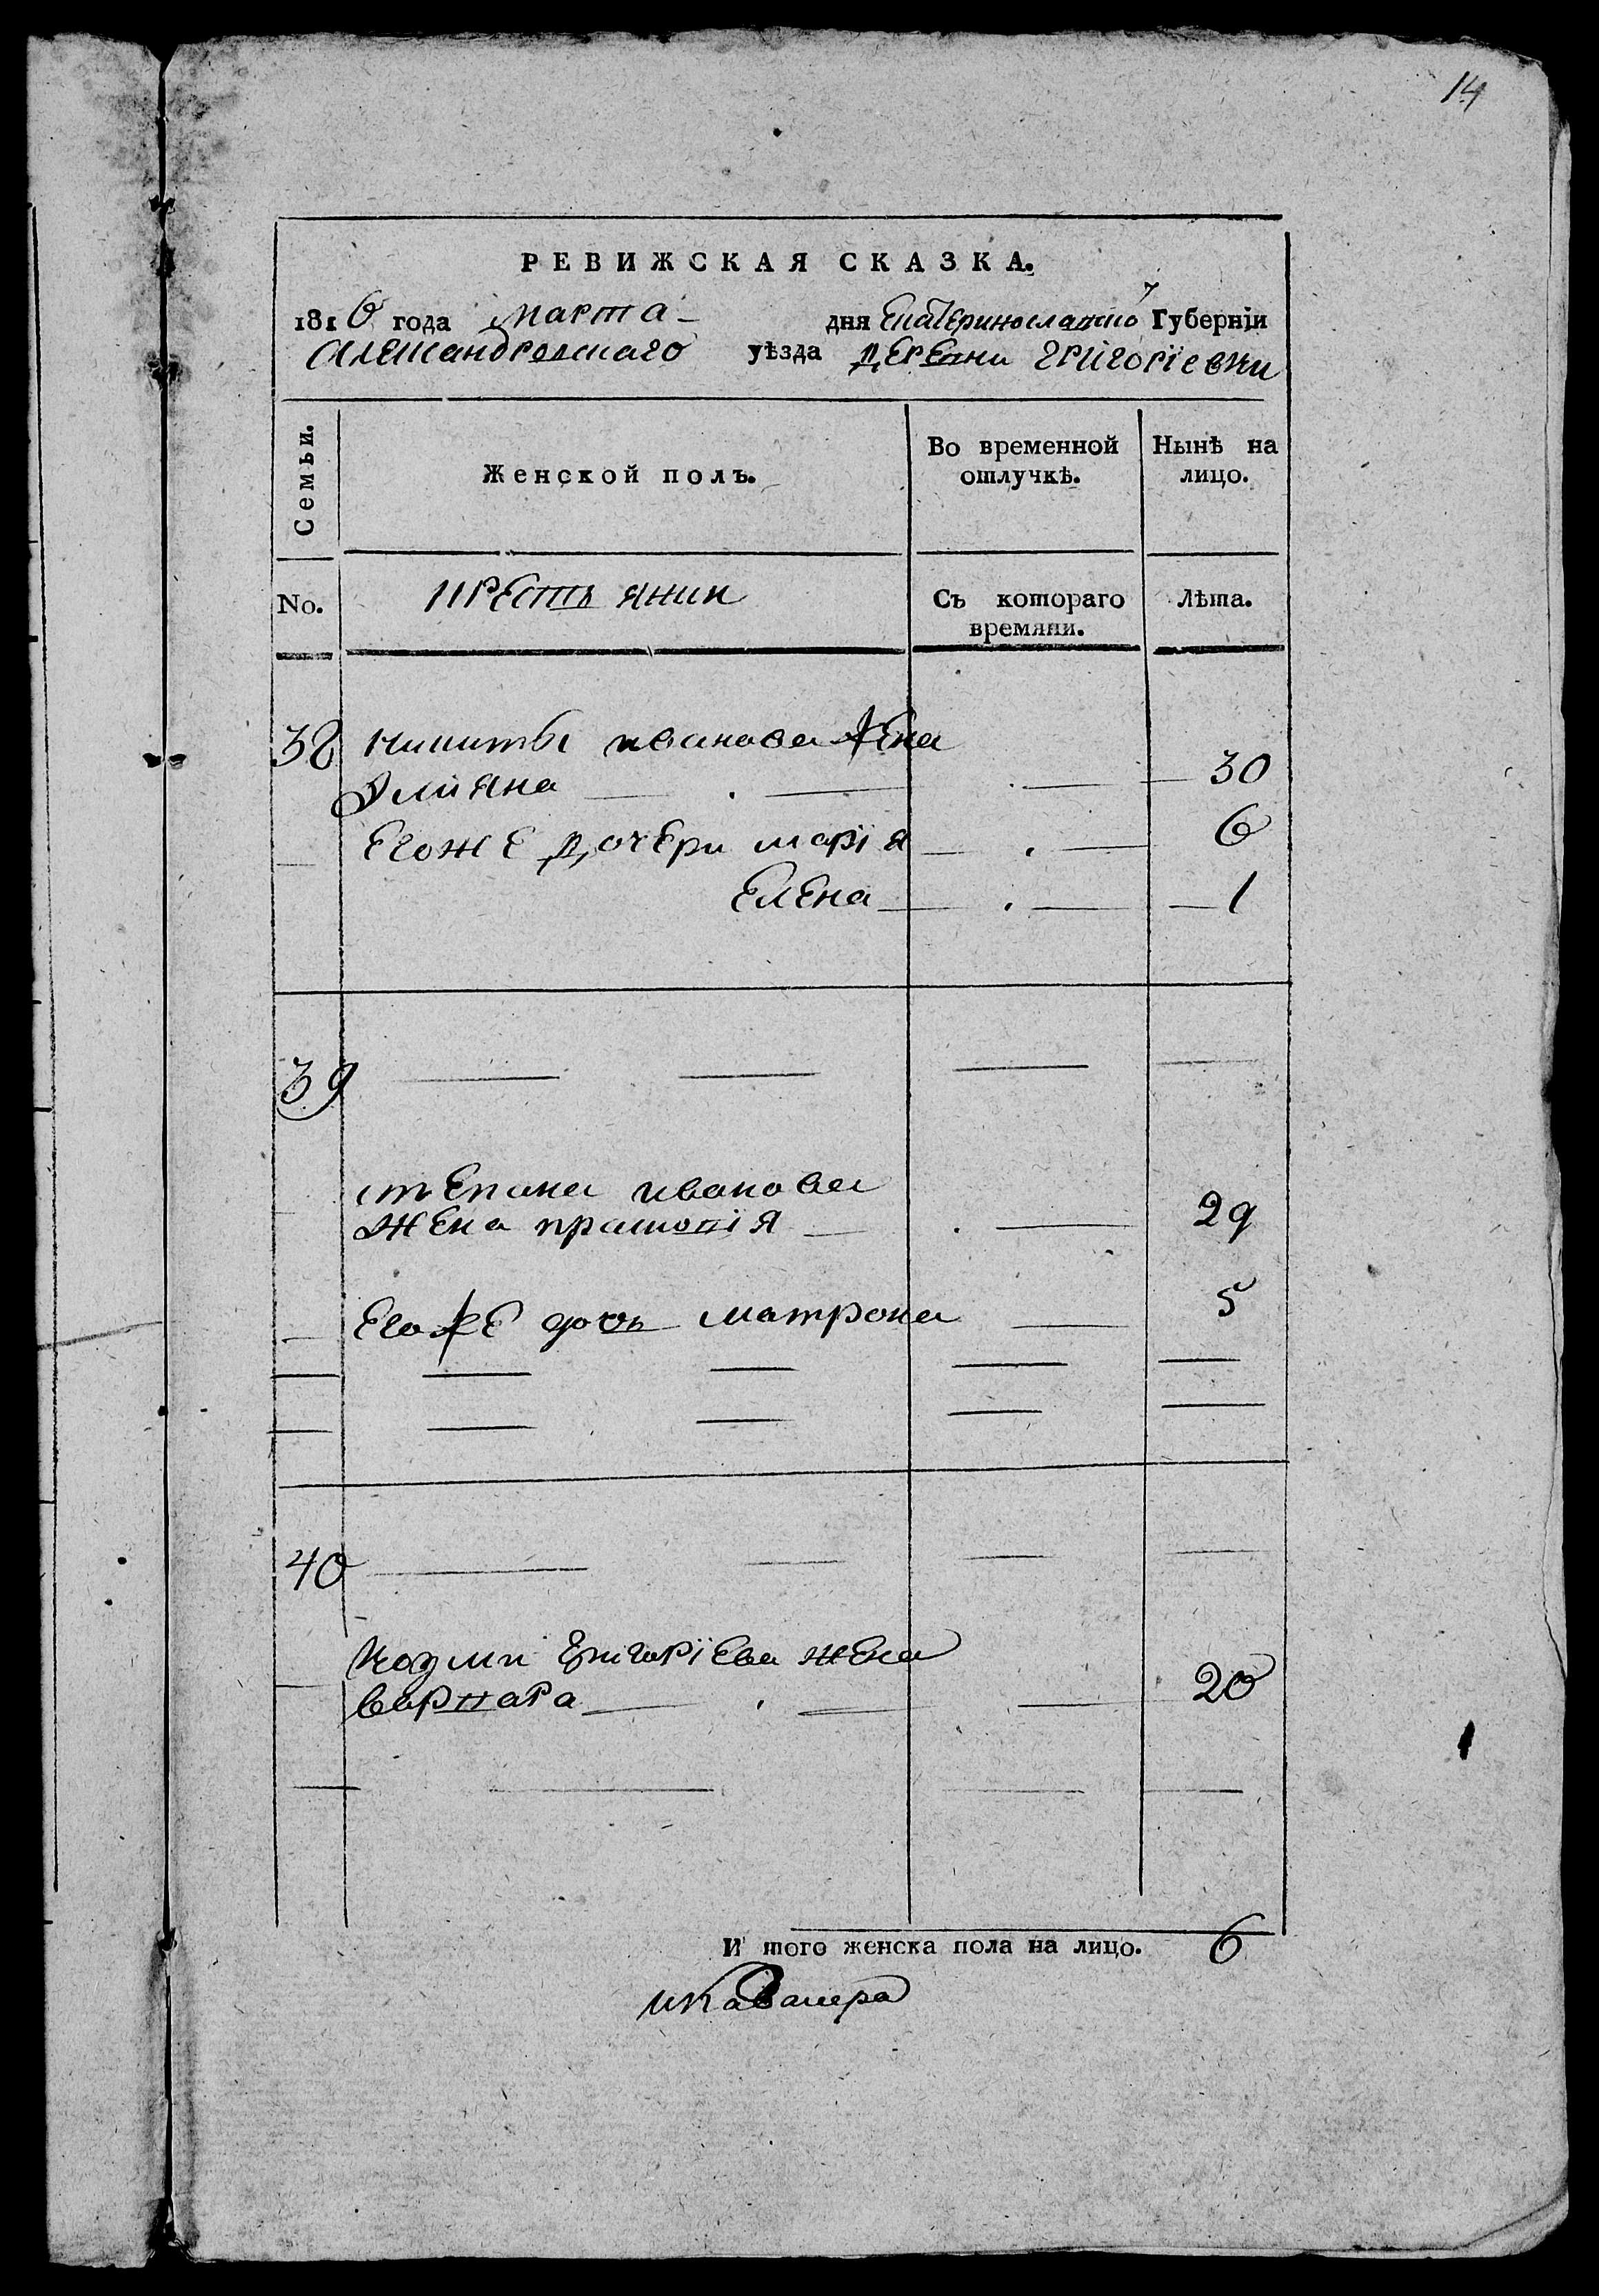 14
РЕВИЖСКАЯ СКАЗКА.
1816 года марта дня Екатеринославско й Губернїи
Александровскаго уѣзда деревни григорїевки
Семьи. Женской полъ. Во временной отлучкѣ. Нынѣ на лицо.
No. крестьянки Съ котораго времяни. Лѣта.
38 никиты иванова жена
Улияна 30
егоже дочери марїя 6
елена 1
39
степана иванова
жена прасковїя 29
егоже дочь матрона 5
40
козми григорїева жена
варвара 20
И того женска пола на лицо. 6
икавалера